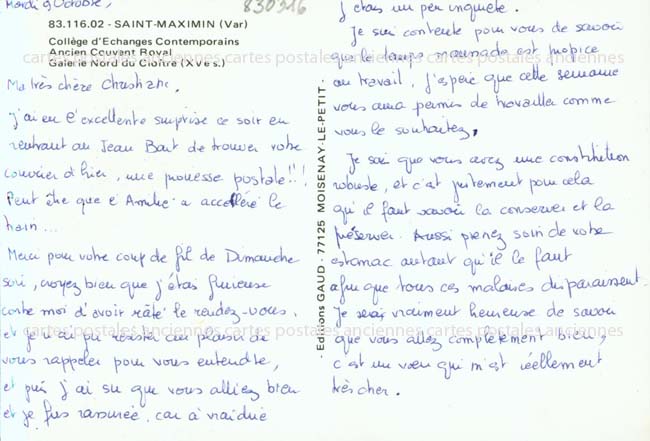 Mardi 9 Octobre,
830916
83.116.02 - SAINT-MAXIMIN (Var)
Collège d'Echanges Contemporains
Ancien Couvent Royal
Galerie Nord du Cloître (XVe s.)
Ma très chère Christiane,
J'ai eu l'excellente surprise ce soir en
rentrant au Jean Bart de trouver votre
courrier d'hier, une prouesse postale !!!
Peut être que l'Amitié a accéléré le
train...
Merci pour votre coup de fil de Dimanche
soir, croyez bien que j'étais furieuse
contre moi d'avoir râté le rendez-vous,
et je n'ai pu résister au plaisir de
vous rappeler pour vous entendre,
et puis j'ai su que vous alliez bien
et je fus rassurée, car à vrai dire
- Editions GAUD - 77125 MOISENAY-LE-PETIT -
j'étais un peu inquiète.
Je suis contente pour vous de savoir
que le temps maussade est propice
au travail, j'espère que cette semaine
vous aura permis de travailler comme
vous le souhaitez,
Je sais que vous avez une constitution
robuste, et c'est justement pour cela
qu'il faut savoir la conserver et la
préserver. Aussi prenez soin de votre
estomac autant qu'il le faut
afin que tous ces malaises disparaissent.
Je serais vraiment heureuse de savoir
que vous allez complètement bien,
c'est un vœu qui m'est réellement
très cher.
cartes postales anciennes cartes postales anciennes cartes postales anciennes
cartes postales anciennes cartes postales anciennes cartes postales anciennes